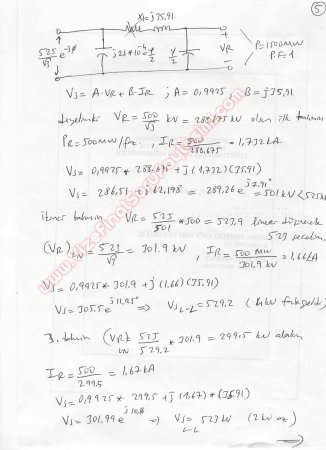 5
X1=j35,91
525/√3 e^-jθ
j2.8*10^-4 Y/2
Y/2
VR
P=1500MW
P.F=1
VS = A·VR + B·IR ; A=0,9925 B=j35,91
VR = 500/√3 kV = 288,675 kV olsun ilk tahmin
PR=500MW/faz, IR = 500/288,675 = 1,732 kA
VS = 0,9925 * 288,675 + j(1,732)(35,91)
VS = 286,51 + j62,198 = 289,26 e^j7.91° = 501 kV < 525kV
İkinci tahmin VR = 525/501 * 500 = 523,9 lineer
523
(VR)LN = 523/√3 = 301.9 kV , IR = 500 MW/301.9 kV = 1,66kA
VS = 0,9925 * 301.9 + j(1.66)(35,91)
VS = 305.5 e^j11.25° ⇒ VSL-L = 529.2 (4kV fazla geldi)
3. tahmin (VR)LN = 525/529.2 * 301.9 = 299.5 kV alalım
IR = 500/299.5 = 1,67kA
VS = 0,9925 * 299,5 + j(1,67)*(35,91)
VS = 301.99 e ⇒ VSL-L = 523 kV (2 kV az)
www.VizeFinalSoruPaylasimi.com